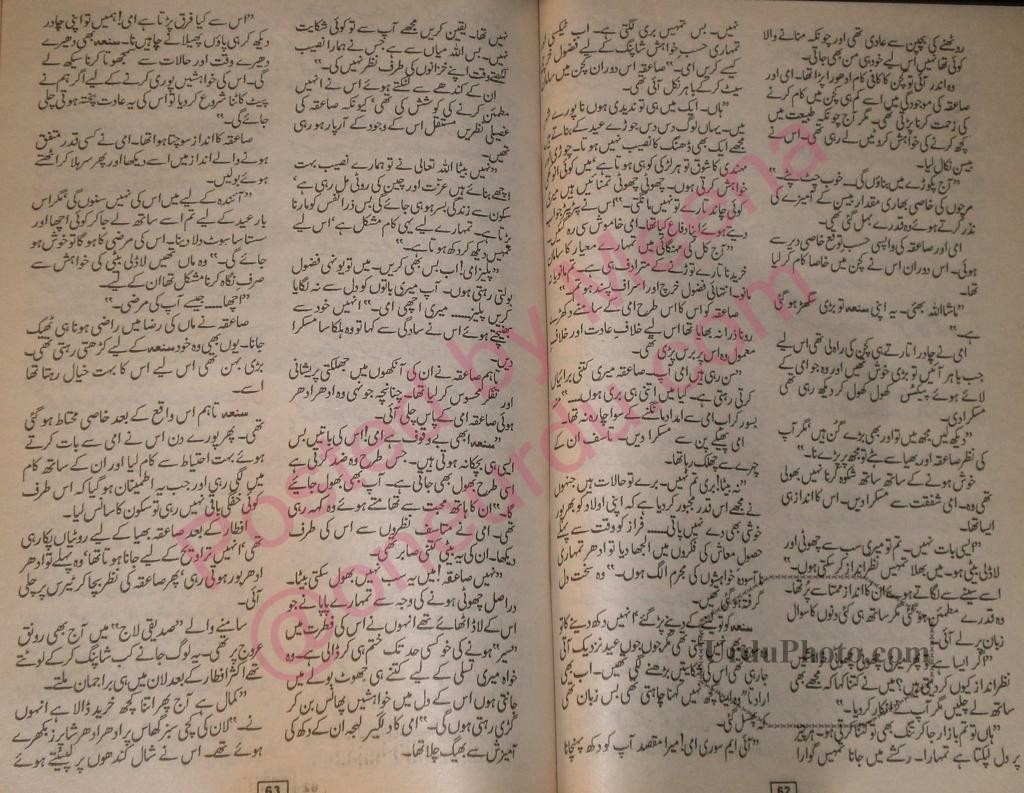 روٹھنے کی بچپن سے عادی تھی اور چونکہ منانے والا
کوئی تھا نہیں اس لیے خود ہی من بھی جاتی۔
وہ اندر آئی تو کچن کا کافی کام ادھورا پڑا تھا۔ امی اور
صاعقہ کی موجودگی میں اسے کم ہی کچن میں کام کرنے
کی زحمت کرنا پڑتی تھی۔ مگر آج چونکہ طبیعت میں
کچھ کرنے کی خواہش کروٹیں لے رہی تھی۔ اس نے
بیسن نکال لیا۔
"آج پکوڑے میں بناؤں گی۔۔۔ خوب چٹ پٹے"
مرچوں کی خاصی بھاری مقدار بیسن کے آمیزے کی
نذر کرتے ہوئے وہ قدرے بہل گئی تھی۔
امی اور صاعقہ کی واپسی حسب توقع خاصی دیر سے
ہوئی۔ اس دوران اس نے کچن میں خاصا کام کر لیا
تھا۔
"ماشاء اللہ بھئی۔ یہ اپنی سنعہ تو بڑی سگھڑ ہو گئی
ہے۔"
امی نے چادر اتارتے ہی کچن کی راہ لی تھی اس لیے
جب باہر آئیں تو بڑی خوش تھیں اور وہ جو امی کے
لائے ہوئے پیکٹس کھول کھول کر دیکھ رہی تھی
مسکرا دی۔
"دیکھ لیں مجھ میں تو اور بھی بڑے گُن ہیں مگر آپ
کی نظر صاعقہ اور بھیا سے ہٹے تو مجھ پر پڑے نا۔"
خوش ہونے کے ساتھ ساتھ شکوہ کرنا نہیں بھولی
تھی وہ۔ امی شفقت سے مسکرا دیں۔ اس کا انداز ہی
ایسا تھا۔
"ایسی بات نہیں۔ تم تو میری سب سے چھوٹی اور
لاڈلی بیٹی ہو۔ میں بھلا تمہیں نظر انداز کر سکتی ہوں۔"
اسے سینے سے لگاتے ہوئے ان کا انداز ممتا سے پر تھا۔
وہ قدرے مطمئن ہو گئی مگر ساتھ ہی کئی دنوں کا سوال
زبان پر لے آئی۔
"اگر ایسا ہے
نظر انداز کیوں کر دیتی ہیں؟ میں نے کتنا کہا کہ مجھے بھی
ساتھ لے چلیں مگر آپ نے انکار کر دیا۔"
"ہاں تو تم بازار جا کر تنگ بھی تو کتنا کرتی ہو۔ ہر چیز
پر دل لپکتا ہے تمہارا۔ رکشے میں جانا تمہیں گوارا
62
نہیں۔ بس تمہیں بری لگتی ہے۔ اب ٹیکسی
تمہاری حسب خواہش شاپنگ کے لیے فضول
کیسے کریں امی۔" صاعقہ اس دوران کچن میں سامان
سیٹ کر کے باہر نکل آئی تھی۔
"ہاں۔ ایک میں ہی تو ندیدی ہوں نا پورے
میں۔ یہاں لوگ دس دس جوڑے عید کے بناتے ہیں
مجھے ایک بھی ڈھنگ کا نصیب نہیں ہوتا۔ چوڑی
مہندی کا شوق تو ہر لڑکی کو ہی ہوتا ہے میں کوئی انوکھی
خواہش کرتی ہوں۔ چھوٹی چھوٹی تمنائیں ہیں میری
کوئی چاند تارے تو نہیں مانگتی۔" اس نے
دیتے ہوئے اپنا دفاع کیا تھا۔ امی خاموش سی رہ گئیں۔
"آج کل کی مہنگائی میں تمہارے معیار کا سامان
خریدنا تارے توڑنے کے مترادف ہی ہے۔ تم مانو یا نہ
مانو۔ انتہائی فضول خرچ اور اسراف پسند ہو تم۔"
صاعقہ کو اس کا اس طرح امی کے سامنے دکھڑے
رونا ذرا نہ بھایا تھا اس لیے خلاف عادت اور خلاف
معمول وہ اس پر برس پڑی تھی۔
"سن رہی ہیں امی آپ۔ صاعقہ میری کتنی برائیاں
کرتی رہتی ہے۔ کیا میں اتنی ہی بری ہوں۔"
بسور کر اب امی سے امداد مانگنے کے سوا چارہ نہ تھا۔
امی پھیکے پن سے مسکرا دیں۔ تاسف ان کے
چہرے سے چھلک رہا تھا۔
"نہ بیٹا! بری تم نہیں۔ برے تو حالات ہیں جنہوں
نے مجھے اس قدر مجبور کر دیا ہے کہ اپنی اولاد کو بھرپور
خوشی بھی دے نہیں پاتی۔۔۔ فراز کو وقت سے پہلے
حصول معاش کی فکروں میں الجھا دیا تو ادھر تمہاری
نا آسودہ خواہشوں کی مجرم الگ ہوں۔" وہ سخت دل
گرفتہ ہو گئی تھیں۔
سنعہ کو تو لینے کے دینے پڑ گئے! انہیں دکھ دینے کا تو
تھی مگر جوں جوں عید نزدیک آتی
جا رہی تھی اس کی شکایتیں بڑھنے لگی تھیں۔ اب بھی
ارادتاً وہ ایسا کچھ نہیں کہنا چاہتی تھی بس زبان تھی
کہ پھسل گئی۔
"آئی ایم سوری امی! میرا مقصد آپ کو دکھ پہنچانا
نہیں تھا۔ یقین کریں مجھے آپ سے تو کوئی شکایت
نہیں۔ بس اللہ میاں سے ہے جس نے ہمارا نصیب
لکھتے وقت اپنے خزانوں کی طرف نظر نہیں کی۔"
ان کے کندھے سے لٹکتے ہوئے اس نے انہیں
مطمئن کرنے کی کوشش کی تھی کیونکہ صاعقہ کی
غصیلی نظریں مستقل اس کے وجود کے آر پار ہو رہی
تھیں۔
"نہیں بیٹا اللہ تعالیٰ نے تو ہمارے نصیب بہت
اچھے بنائے ہیں عزت اور چین کی روٹی مل رہی ہے
سکون سے زندگی بسر ہو ہی جائے گی بس ذرا نفس کو مارنا
پڑتا ہے۔ تمہارے لیے یہی کام مشکل ہے اس لیے
تمہیں دیکھ کر دکھ ہوتا ہے۔"
"پلیز امی! اب بس بھی کریں۔ میں تو یونہی فضول
بولتی رہتی ہوں۔ آپ میری باتوں کو دل سے نہ لگایا
کریں پلیز۔۔۔ میری اچھی امی۔" انہیں خود سے
بھینچتے ہوئے اس نے سادگی سے کہا تو وہ ہلکا سا مسکرا
دیں۔
تاہم صاعقہ نے ان کی آنکھوں میں چھلکتی پریشانی
اور تفکر محسوس کر لیا تھا۔ چنانچہ جونہی وہ ادھر ادھر
ہوئی صاعقہ امی کے پاس چلی آئی۔
"سنعہ ابھی بے وقوف ہے امی! اس کی باتیں بس
ایسی ہی بچکانہ ہوتی ہیں۔ جس طرح وہ ضد کرتی ہے
اسی طرح بھول بھی جاتی ہے۔ آپ بھی بھول جائیے
گا۔" ان کا ہاتھ محبت سے تھامتے ہوئے وہ کہہ رہی
تھی۔ امی نے متاسف نظروں سے اس کی طرف
دیکھا۔ ان کی یہ بیٹی کتنی صابر تھی۔
"نہیں صاعقہ! میں یہ سب نہیں بھول سکتی بیٹا۔
دراصل چھوٹی ہونے کی وجہ سے تمہارے پاپا نے جو
اس کے لاڈ اٹھائے تھے انہوں نے اس کی فطرت میں
"سیر" ہونے کی خو کسی حد تک ختم ہی کر ڈالی ہے۔ وہ
خواہ میری تسلی کے لیے کتنے ہی جھوٹ بولے میں
جانتی ہوں اس کے دل میں خواہشیں پھانس بن کر
گڑی رہتی ہوں گی۔" امی کا دلگیر لہجہ ان کے دکھ کی
آمیزش سے بھیگ چلا تھا۔
"اس سے کیا فرق پڑتا ہے امی! ہمیں تو اپنی چادر
دیکھ کر ہی پاؤں پھیلانے چاہئیں نا۔ سنعہ بھی دھیرے
دھیرے وقت اور حالات سے سمجھوتا کرنا سیکھ لے
گی۔ اس کی خواہشیں پوری کرنے کے لیے اگر ہم نے
پیٹ کاٹنا شروع کر دیا تو اس کی یہ عادت پختہ ہوتی چلی
جائے گی۔"
صاعقہ کا انداز سوچتا ہوا تھا۔ امی نے کسی قدر متفق
ہونے والے انداز میں اسے دیکھا اور پھر سر ہلا کر اٹھتے
ہوئے بولیں۔
"آئندہ کے لیے میں اس کی نہیں سنوں گی مگر اس
بار عید کے لیے تم اسے ساتھ لے جا کر کوئی اچھا اور
سستا سا سوٹ دلا دینا۔ اس کی مرضی کا ہو گا تو خوش ہو
جائے گی۔" وہ ماں تھیں لاڈلی بیٹی کی خواہش سے
صرف نگاہ کرنا مشکل تھا ان کے لیے۔
"اچھا۔۔۔ جیسے آپ کی مرضی۔"
صاعقہ نے ماں کی رضا میں راضی ہونا ہی ٹھیک
جانا۔ یوں بھی وہ خود سنعہ کے لیے کڑھتی رہتی تھی۔
بڑی بہن تھی اس لیے اس کا بہت خیال رہتا تھا
اسے۔
سنعہ تاہم اس واقع کے بعد خاصی محتاط ہو گئی
تھی۔ پھر پورے دن اس نے امی سے بات کرتے
ہوئے بہت احتیاط سے کام لیا اور ان کے ساتھ کام
میں لگی رہی اور جب یہ اطمینان ہو گیا کہ اس طرف
کوئی خفگی باقی نہیں رہی تو سکون کا سانس لیا۔
افطار کے بعد صاعقہ بھیا کے لیے روٹیاں پکا رہی
تھی انہیں تراویح کے لیے جانا ہوتا تھا وہ پہلے تو ادھر
ادھر پور ہوتی رہی پھر صاعقہ کی نظر بچا کر ٹیرس پر چلی
آئی۔
سامنے والے "صدیقی لاج" میں آج بھی رونق
عروج پر تھی۔ یہ لوگ جانے کب شاپنگ کر کے لوٹتے
تھے اکثر افطار کے بعد لان میں ہی براجمان ملتے۔
"کمال ہے آج پھر اتنا کچھ خرید ڈالا ہے انہوں
نے۔" لان کی کچی سبز گھاس پر ادھر ادھر شاپرز بکھرے
ہوئے تھے۔ اس نے شال کندھوں پر لپیٹتے ہوئے
63
Posted by Meena
@oneurdu.com
UrduPhoto.com